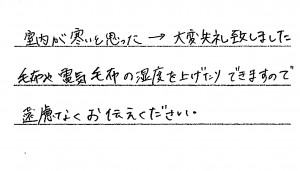 室内が寒いと思った → 大変失礼致しました
毛布や電気毛布の温度を上げたりできますので
遠慮なくお伝えください。